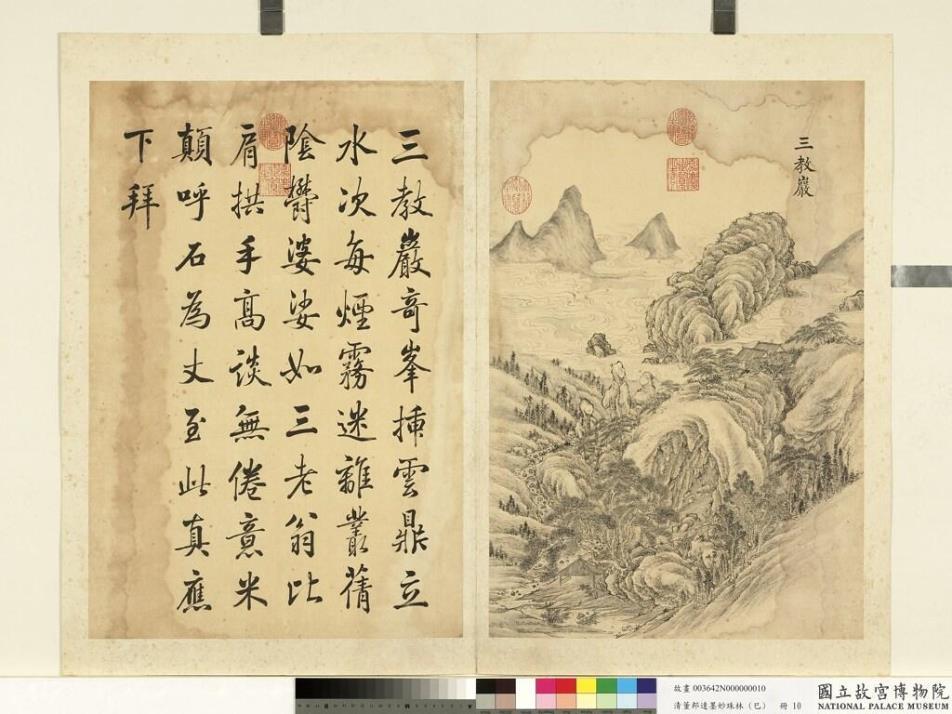 三教巖
三教巖奇峯揷雲鼎立
水次每煙霧迷離叢蒨
陰欝婆娑如三老翁比
肩拱手高談無倦意米
顛呼石為丈至此真應
下拜
故畫 003642N000000010
清董邦達墨妙珠林（巳） 冊 10
國立故宮博物院
NATIONAL PALACE MUSEUM